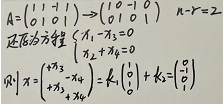 A=(1 1 -1 1
0 1 0 1) → (1 0 -1 0
0 1 0 1) n-r=2
还原为方程 { x₁-x₃=0
x₂+x₄=0
则 x=(+x₃
-x₄
+x₃
+x₄)=k₁(1
1
1
0)+k₂(0
-1
0
1)